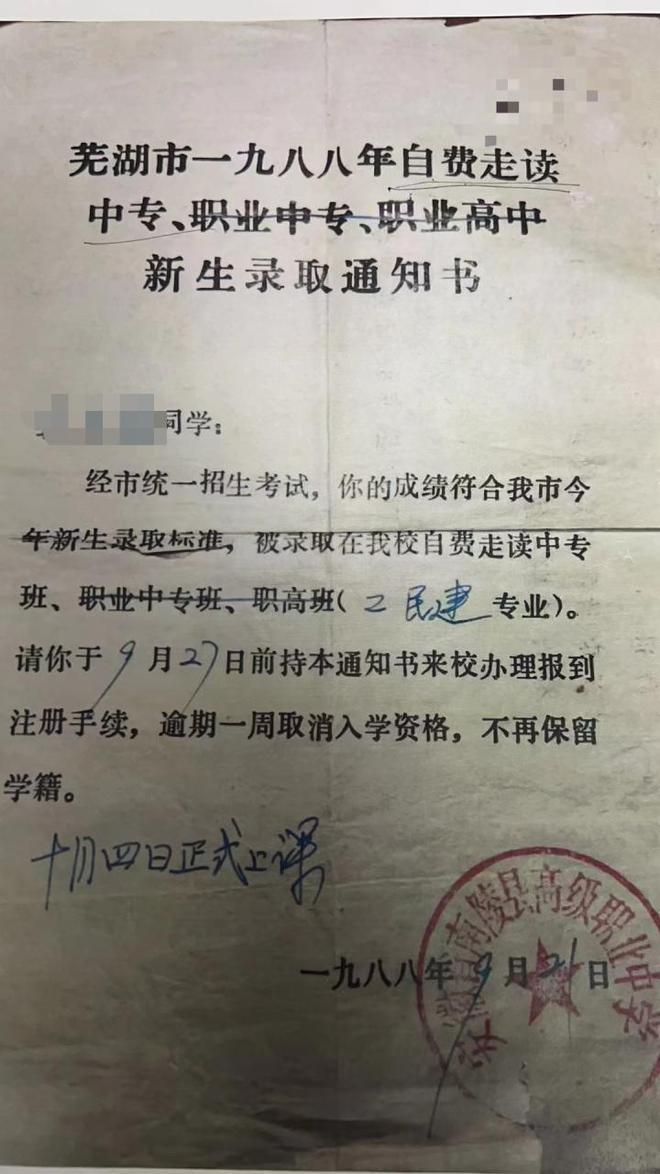 芜湖市一九八八年自费走读
中专、职业中专、职业高中
新生录取通知书
同学：
经市统一招生考试，你的成绩符合我市今
年新生录取标准，被录取在我校自费走读中专
班、职业中专班、职高班（工民建专业）。
请你于9月27日前持本通知书来校办理报到
注册手续，逾期一周取消入学资格，不再保留
学籍。
十月四日正式上课
南陵县高级职业中学
一九八八年9月21日